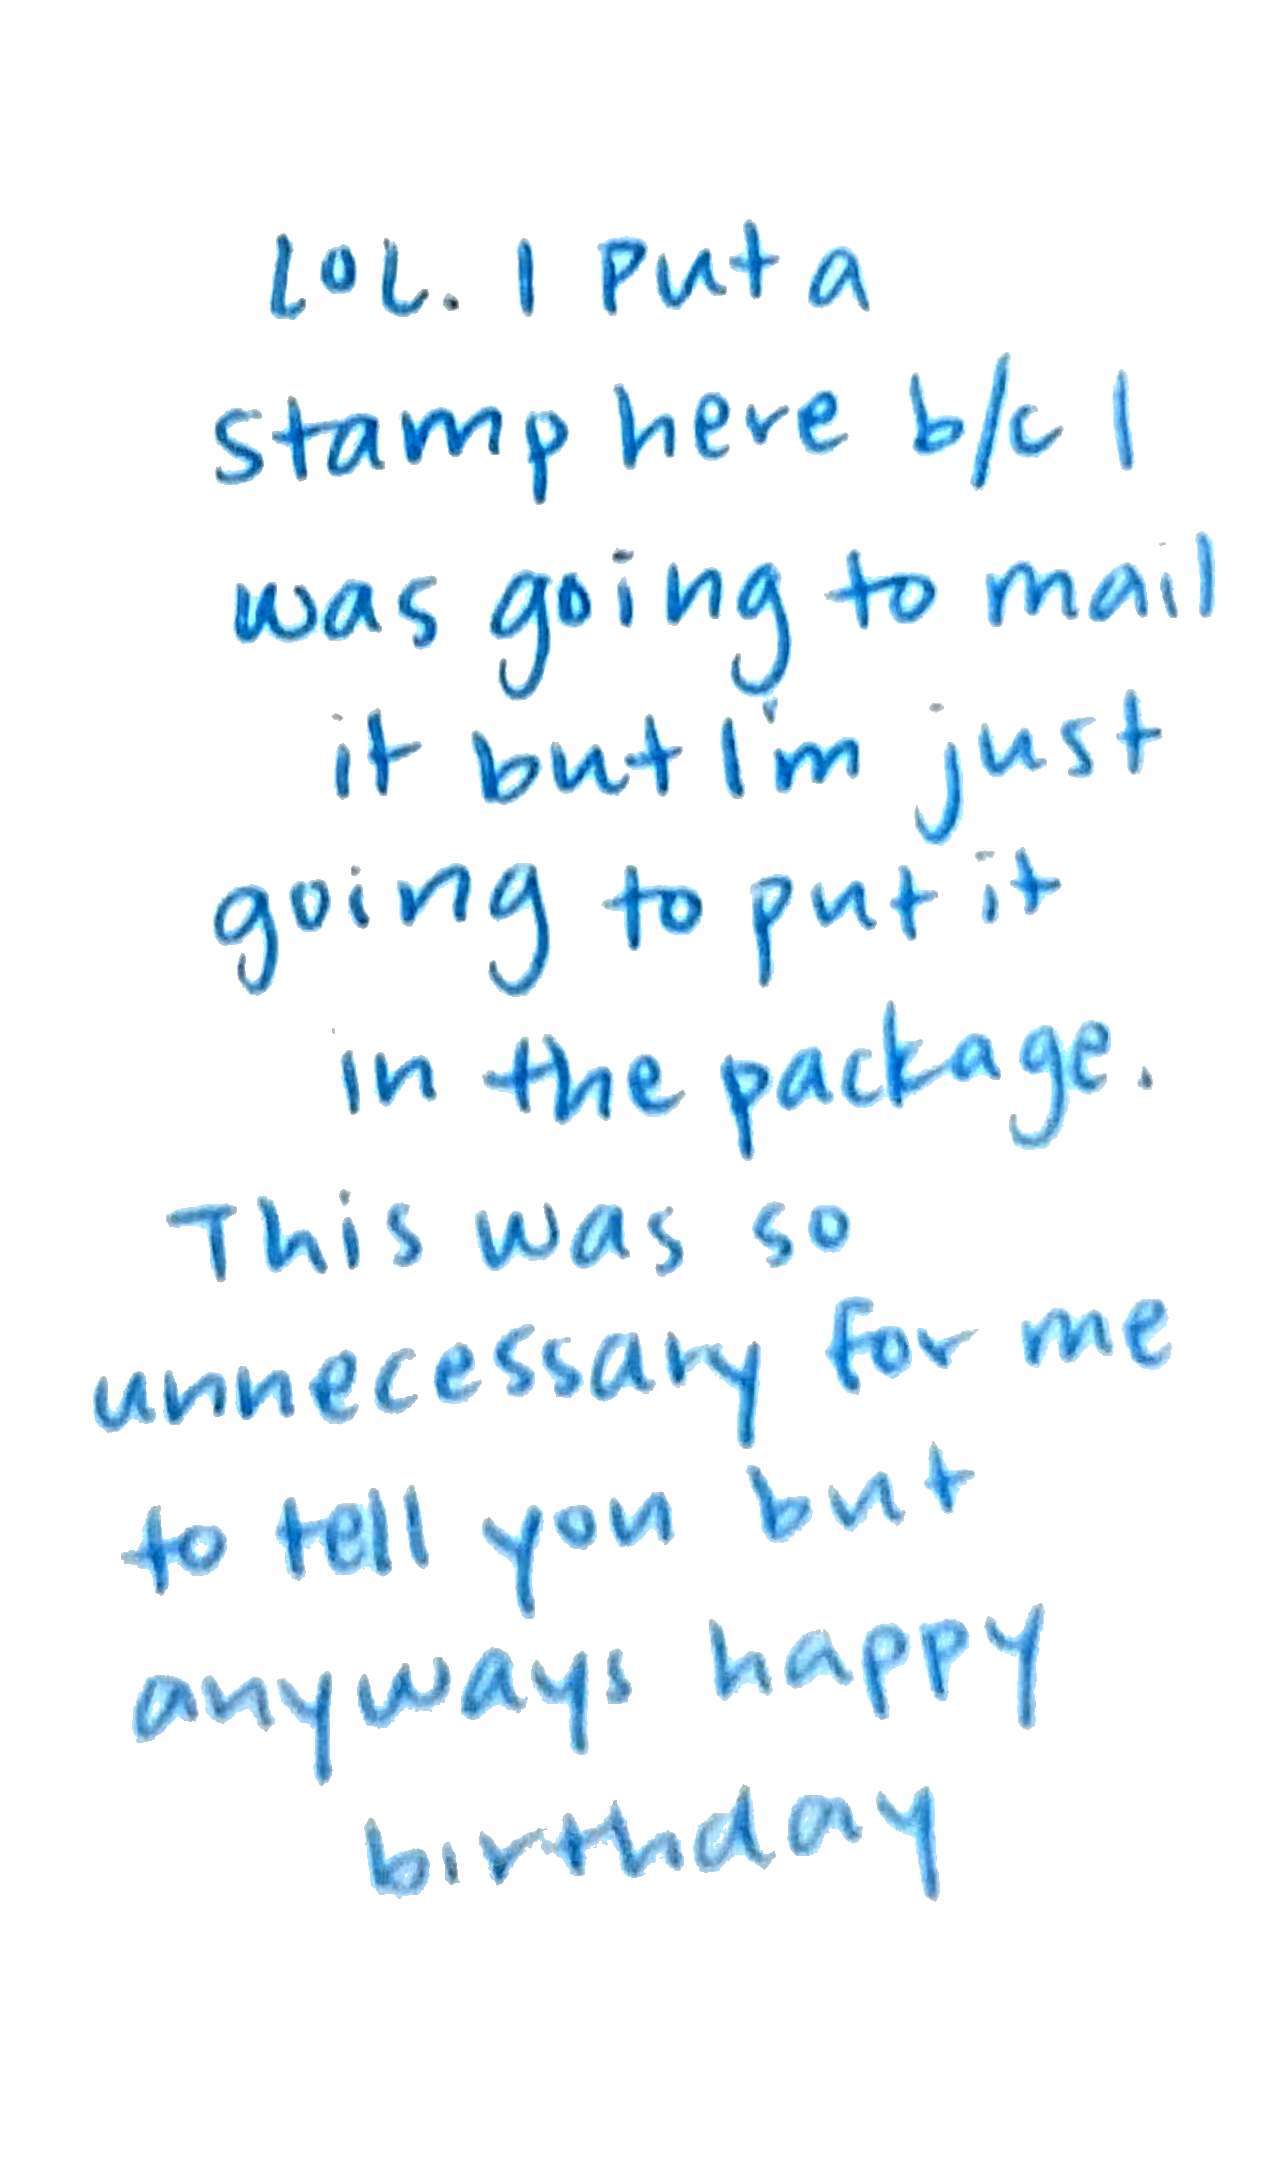 LOL. I put a
stamp here b/c I
was going to mail
it but I'm just
going to put it
in the package.
This was so
unnecessary for me
to tell you but
anyways happy
birthday